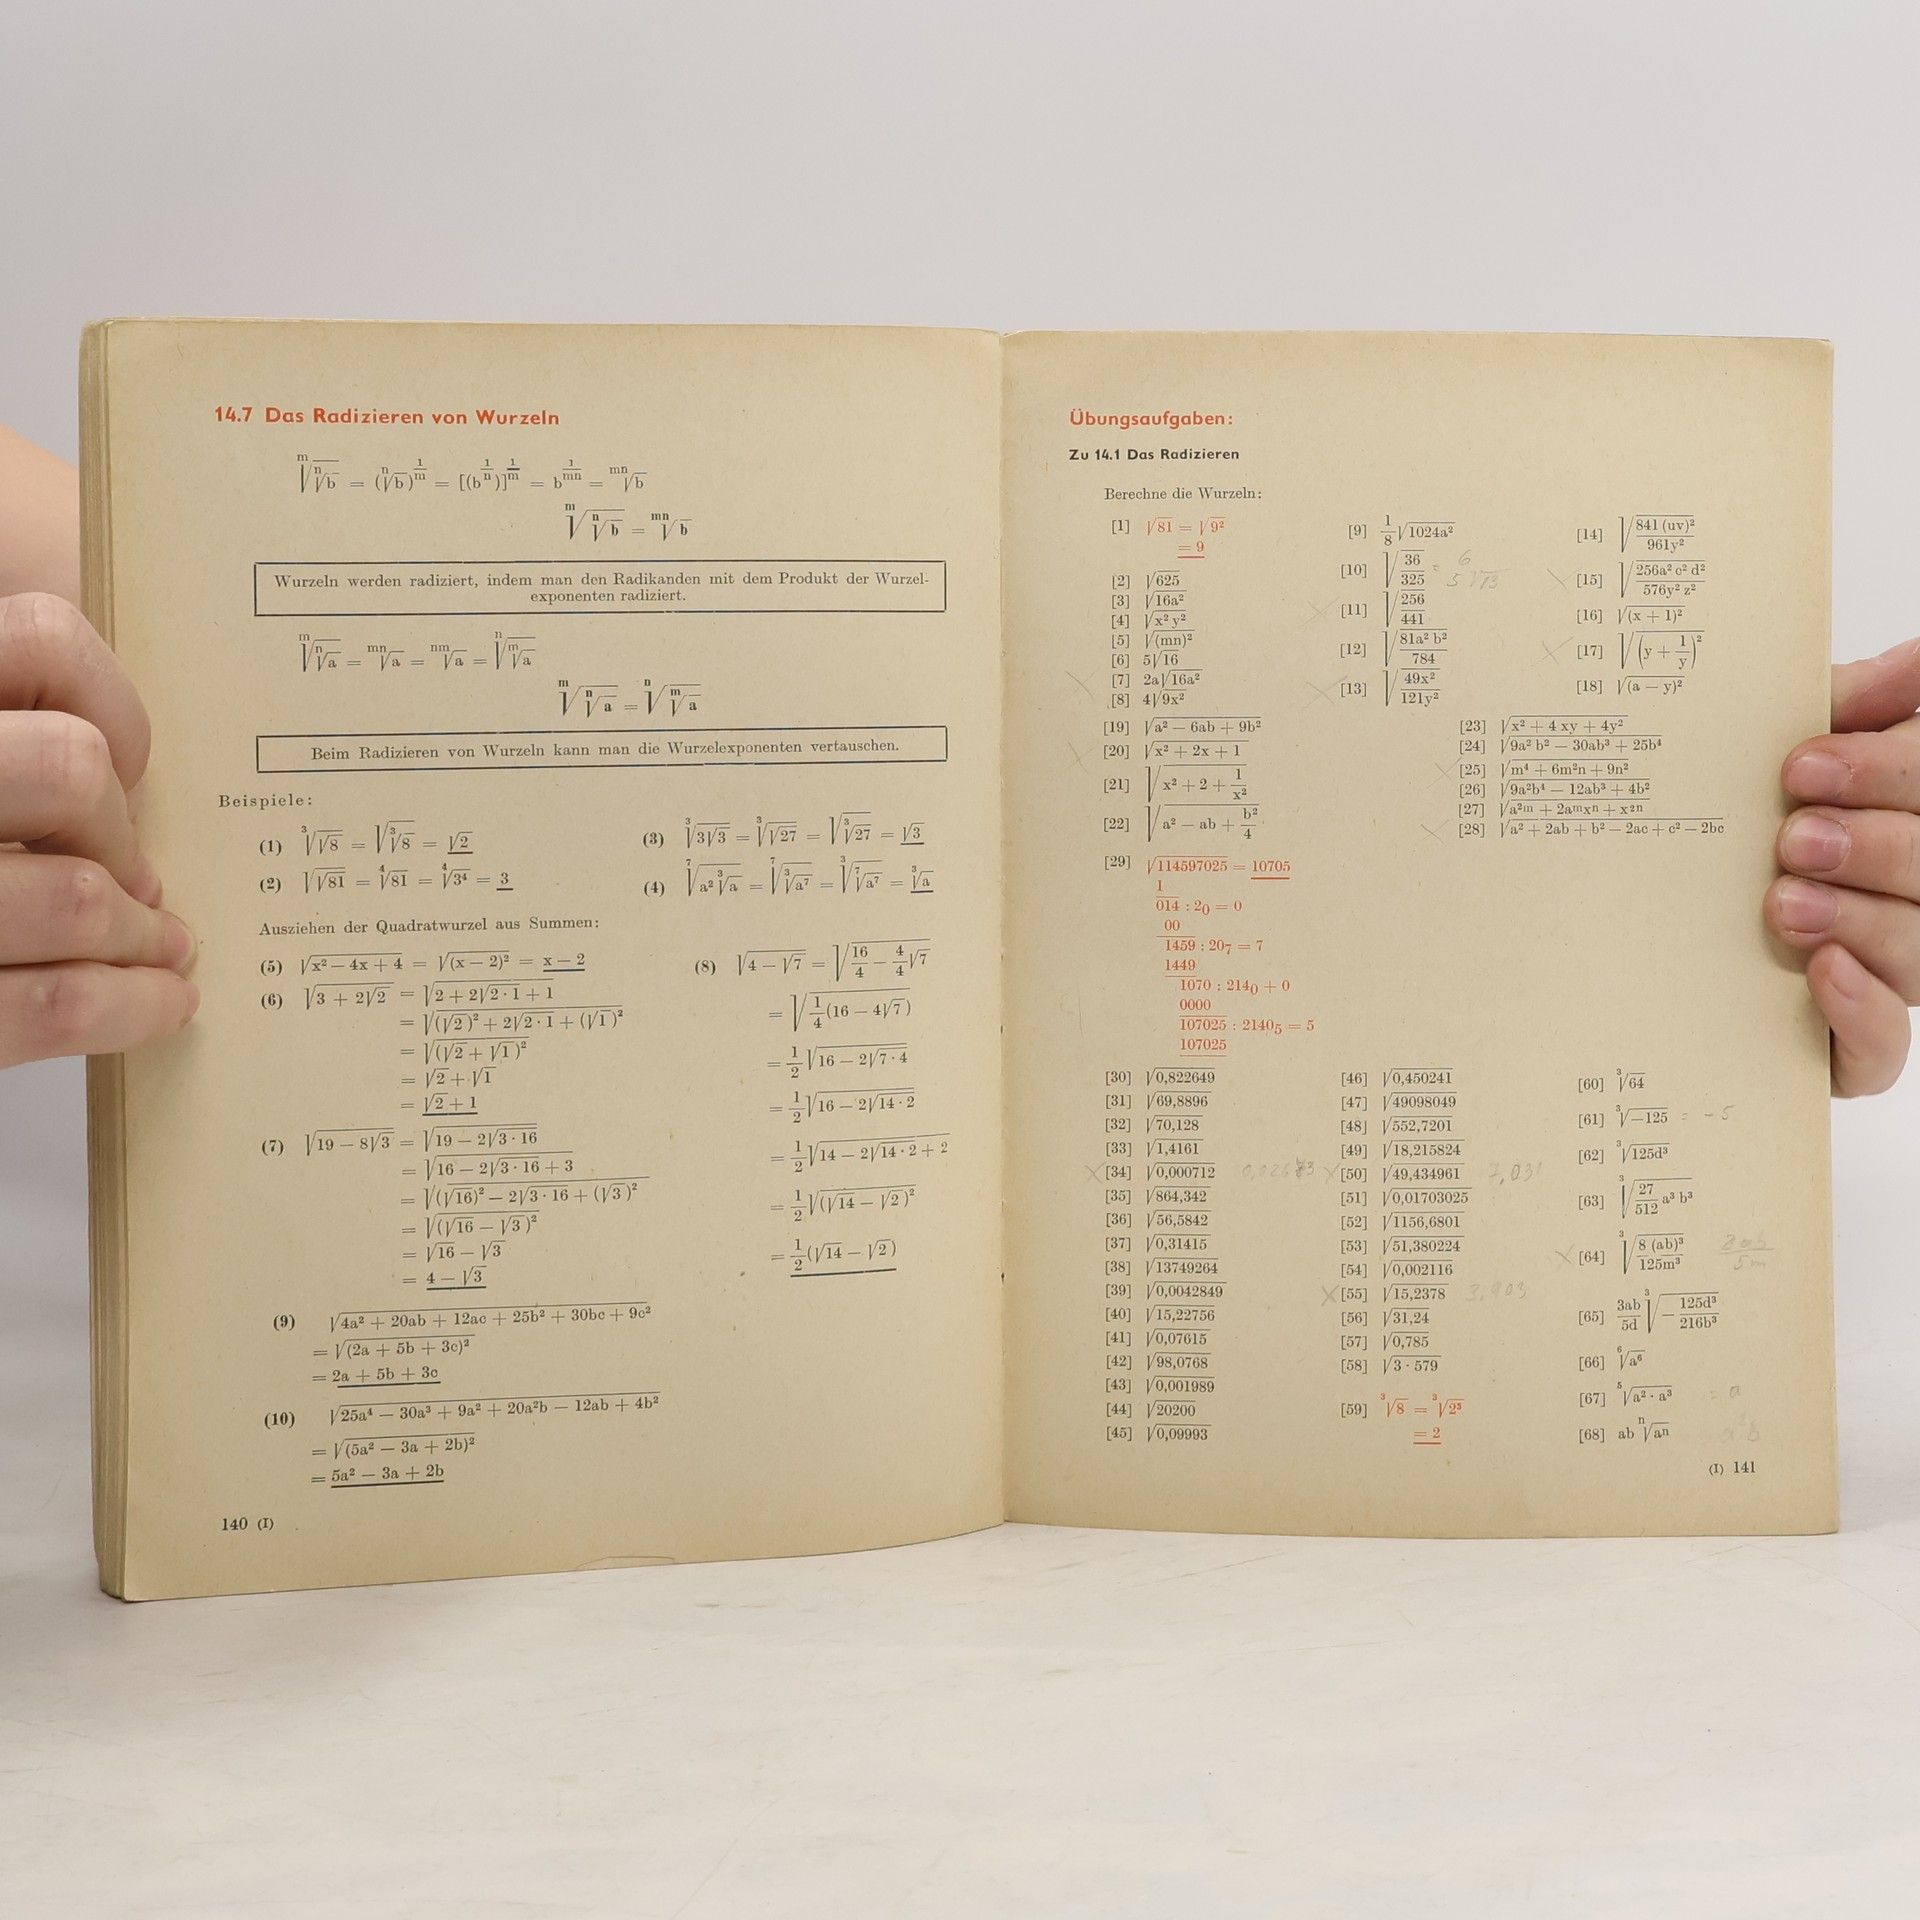 14.7 Das Radizieren von Wurzeln
ᵐ√(ⁿ√b) = (ⁿ√b)^(1/m) = [(b^(1/n))]^(1/m) = b^(1/mn) = ᵐⁿ√b
ᵐ√(ⁿ√b) = ᵐⁿ√b
Wurzeln werden radiziert, indem man den Radikanden mit dem Produkt der Wurzel-
exponenten radiziert.
ᵐ√(ⁿ√a) = ᵐⁿ√a = ⁿᵐ√a = ⁿ√(ᵐ√a)
ᵐ√(ⁿ√a) = ⁿ√(ᵐ√a)
Beim Radizieren von Wurzeln kann man die Wurzelexponenten vertauschen.
Beispiele:
(1) ³√(√8) = √(³√8) = √2
(2) √(√81) = ⁴√81 = ⁴√(3⁴) = 3
(3) ³√(3√3) = ³√(√27) = √(³√27) = √3
(4) ⁷√(a² ³√a) = ⁷√(³√a⁷) = ³√(⁷√a⁷) = ³√a
Ausziehen der Quadratwurzel aus Summen:
(5) √(x² − 4x + 4) = √((x − 2)²) = x − 2
(6) √(3 + 2√2) = √(2 + 2√(2 · 1) + 1)
= √((√2)² + 2√(2 · 1) + (√1)²)
= √((√2 + √1)²)
= √2 + √1
= √2 + 1
(7) √(19 − 8√3) = √(19 − 2√(3 · 16))
= √(16 − 2√(3 · 16) + 3)
= √((√16)² − 2√(3 · 16) + (√3)²)
= √((√16 − √3)²)
= √16 − √3
= 4 − √3
(8) √(4 − √7) = √(16/4 − 4/4 √7)
= √(1/4 (16 − 4√7))
= 1/2 √(16 − 2√(7 · 4))
= 1/2 √(16 − 2√(14 · 2))
= 1/2 √(14 − 2√(14 · 2) + 2)
= 1/2 √((√14 − √2)²)
= 1/2 (√14 − √2)
(9) √(4a² + 20ab + 12ac + 25b² + 30bc + 9c²)
= √((2a + 5b + 3c)²)
= 2a + 5b + 3c
(10) √(25a⁴ − 30a³ + 9a² + 20a²b − 12ab + 4b²)
= √((5a² − 3a + 2b)²)
= 5a² − 3a + 2b
140 (I)
Übungsaufgaben:
Zu 14.1 Das Radizieren
Berechne die Wurzeln:
[1] √81 = √(9²)
= 9
[2] √625
[3] √(16a²)
[4] √(x² y²)
[5] √((mn)²)
[6] 5√16
[7] 2a√(16a²)
[8] 4√(9x²)
[9] 1/8 √(1024a²)
[10] √(36/325) = 6/(5√13)
[11] √(256/441)
[12] √(81a² b²/784)
[13] √(49x²/121y²)
[14] √(841 (uv)²/961y²)
[15] √(256a² c² d²/576y² z²)
[16] √((x + 1)²)
[17] √((y + 1/y)²)
[18] √((a − y)²)
[19] √(a² − 6ab + 9b²)
[20] √(x² + 2x + 1)
[21] √(x² + 2 + 1/x²)
[22] √(a² − ab + b²/4)
[23] √(x² + 4 xy + 4y²)
[24] √(9a² b² − 30ab³ + 25b⁴)
[25] √(m⁴ + 6m²n + 9n²)
[26] √(9a²b⁴ − 12ab³ + 4b²)
[27] √(a²ᵐ + 2aᵐxⁿ + x²ⁿ)
[28] √(a² + 2ab + b² − 2ac + c² − 2bc)
[29] √114597025 = 10705
1
014 : 2₀ = 0
00
1459 : 20₇ = 7
1449
1070 : 214₀ + 0
0000
107025 : 2140₅ = 5
107025
[30] √0,822649
[31] √69,8896
[32] √70,128
[33] √1,4161
[34] √0,000712
[35] √864,342
[36] √56,5842
[37] √0,31415
[38] √13749264
[39] √0,0042849
[40] √15,22756
[41] √0,07615
[42] √98,0768
[43] √0,001989
[44] √20200
[45] √0,09993
[46] √0,450241
[47] √49098049
[48] √552,7201
[49] √18,215824
[50] √49,434961 7,031
[51] √0,01703025
[52] √1156,6801
[53] √51,380224
[54] √0,002116
[55] √15,2378 3,903
[56] √31,24
[57] √0,785
[58] √(3 · 579)
[59] ³√8 = ³√(2³)
= 2
[60] ³√64
[61] ³√−125 = −5
[62] ³√(125d³)
[63] ³√(27/512 a³ b³)
[64] ³√(8 (ab)³/125m³) 2ab/5m
[65] 3ab/5d ³√(− 125d³/216b³)
[66] ⁶√(a⁶)
[67] ⁵√(a² · a³) = a
[68] ab ⁿ√(aⁿ) a²b
(I) 141